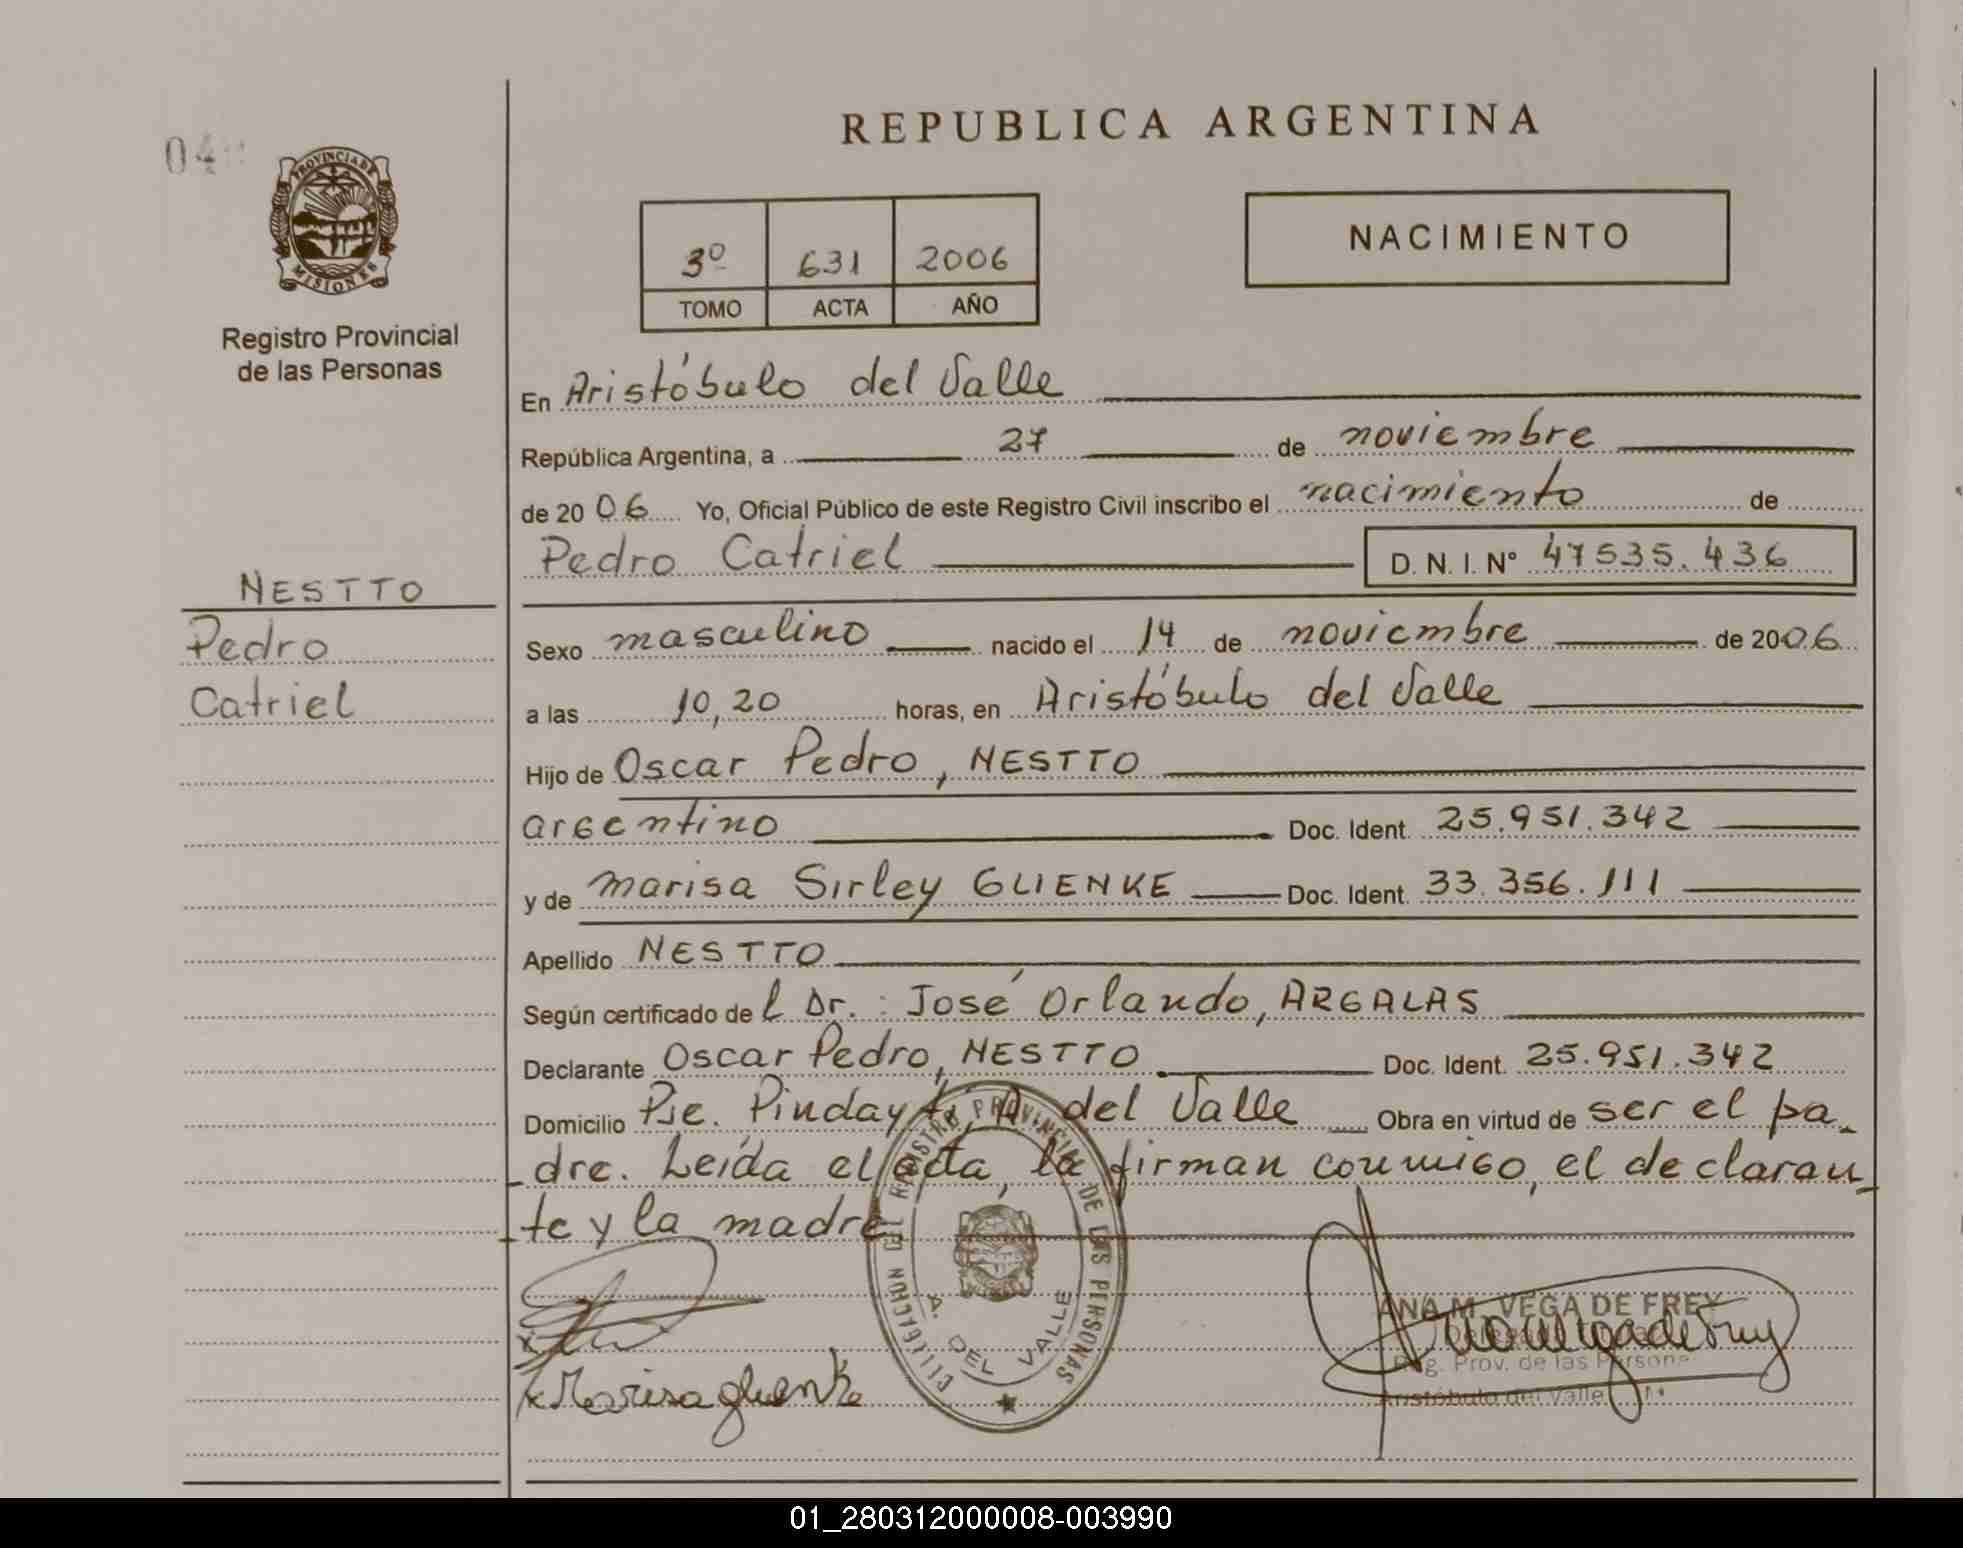 REPUBLICA ARGENTINA
04
PROVINCIA DE
MISIONES
Registro Provincial
de las Personas
3º 631 2006
TOMO ACTA AÑO
NACIMIENTO
En Aristóbulo del Valle
República Argentina, a 27 de noviembre
de 2006 Yo, Oficial Público de este Registro Civil inscribo el nacimiento de
Pedro Catriel D. N. I. Nº 47535.436
NESTTO
Pedro
Catriel
Sexo masculino nacido el 14 de noviembre de 2006
a las 10,20 horas, en Aristóbulo del Valle
Hijo de Oscar Pedro, NESTTO
argentino Doc. Ident. 25.951.342
y de Marisa Sirley GLIENKE Doc. Ident. 33.356.111
Apellido NESTTO
Según certificado del Dr.: José Orlando, ARGALAS
Declarante Oscar Pedro, NESTTO Doc. Ident. 25.951.342
Domicilio Pje. Pindayty, A. del Valle Obra en virtud de ser el pa-
dre. Leída el acta, la firman conmigo, el declaran-
te y la madre
DEL REGISTRO PROVINCIAL DE LAS PERSONAS
A. DEL VALLE
x Marisa glienke
ANA M. VEGA DE FREY
Reg. Prov. de las Personas
Aristóbulo del Valle
01_280312000008-003990